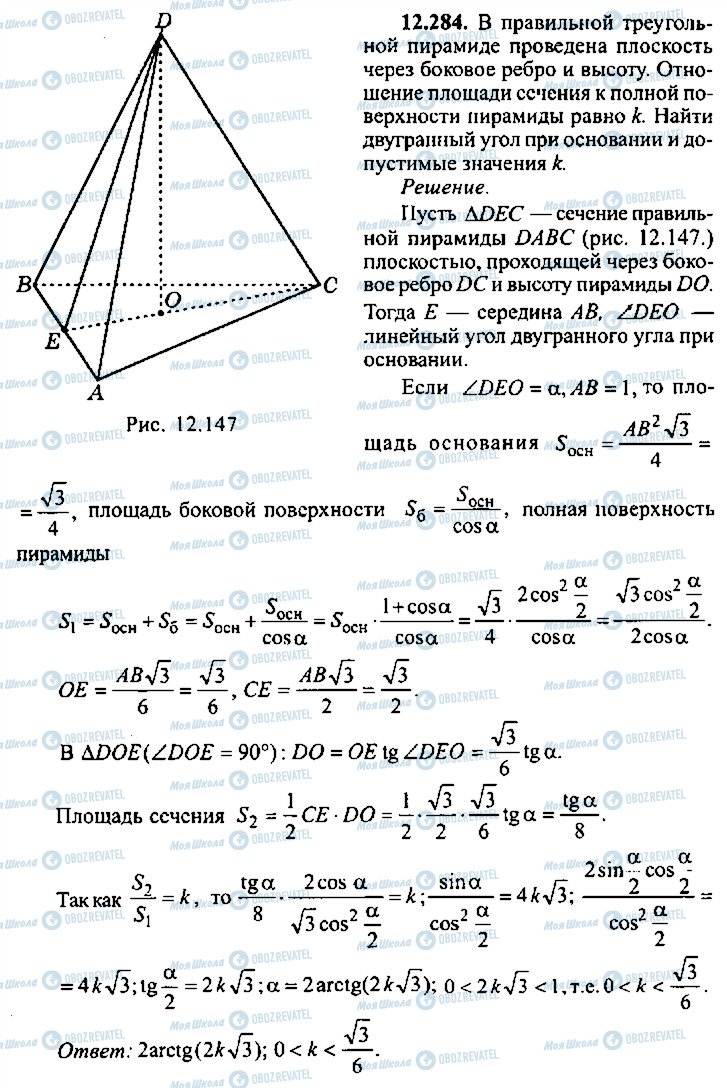 D
B
O
C
E
A
Рис. 12.147
12.284. В правильной треуголь-
ной пирамиде проведена плоскость
через боковое ребро и высоту. Отно-
шение площади сечения к полной по-
верхности пирамиды равно k. Найти
двугранный угол при основании и до-
пустимые значения k.
Решение.
Пусть ΔDEC — сечение правиль-
ной пирамиды DABC (рис. 12.147.)
плоскостью, проходящей через боко-
вое ребро DC и высоту пирамиды DO.
Тогда E — середина AB, ∠DEO —
линейный угол двугранного угла при
основании.
Если ∠DEO = α, AB = 1, то пло-
щадь основания Sосн = AB²√3/4 =
= √3/4, площадь боковой поверхности Sб = Sосн/cos α, полная поверхность
пирамиды
S₁ = Sосн + Sб = Sосн + Sосн/cos α = Sосн · (1 + cos α)/cos α = √3/4 · 2cos² (α/2)/cos α = √3 cos² (α/2)/2cos α.
OE = AB√3/6 = √3/6, CE = AB√3/2 = √3/2.
В ΔDOE (∠DOE = 90°): DO = OE tg ∠DEO = √3/6 tg α.
Площадь сечения S₂ = 1/2 CE · DO = 1/2 · √3/2 · √3/6 tg α = tg α/8.
Так как S₂/S₁ = k, то tg α/8 · 2cos α/(√3 cos² (α/2)) = k; sin α/cos² (α/2) = 4k√3; 2sin (α/2) cos (α/2)/cos² (α/2) =
= 4k√3; tg α/2 = 2k√3; α = 2arctg(2k√3); 0 < 2k√3 < 1, т.е. 0 < k < √3/6.
Ответ: 2arctg(2k√3); 0 < k < √3/6.
МояШкола OBOZREVATEL